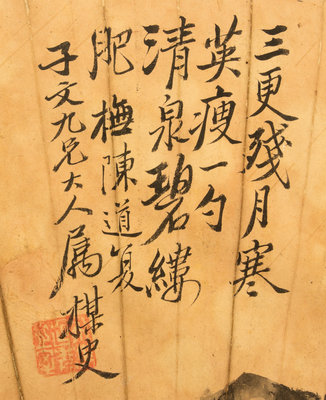 三更殘月寒
英瘦一勺
清泉碧縷
肥橅陳道复
子文九兄大人属楳史